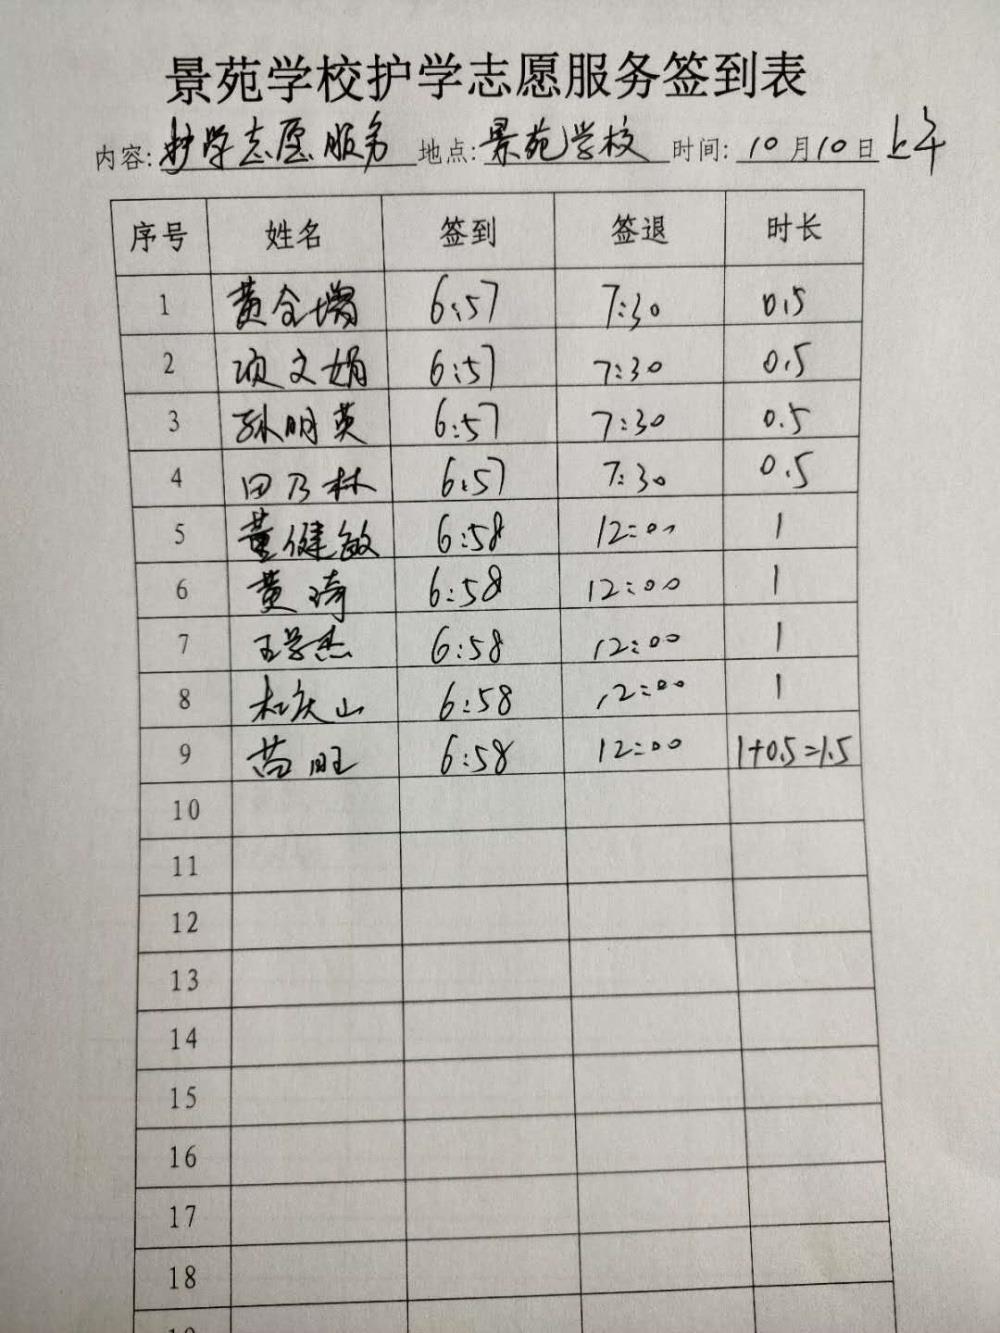 景苑学校护学志愿服务签到表
内容: 护学志愿服务 地点: 景苑学校 时间: 10月10日上午
序号 姓名 签到 签退 时长
1 黄全增 6:57 7:30 0.5
2 项文娟 6:57 7:30 0.5
3 孙明英 6:57 7:30 0.5
4 田乃林 6:57 7:30 0.5
5 董健敏 6:58 12:00 1
6 黄琦 6:58 12:00 1
7 王学杰 6:58 12:00 1
8 杜庆山 6:58 12:00 1
9 苗旺 6:58 12:00 1+0.5=1.5
10
11
12
13
14
15
16
17
18